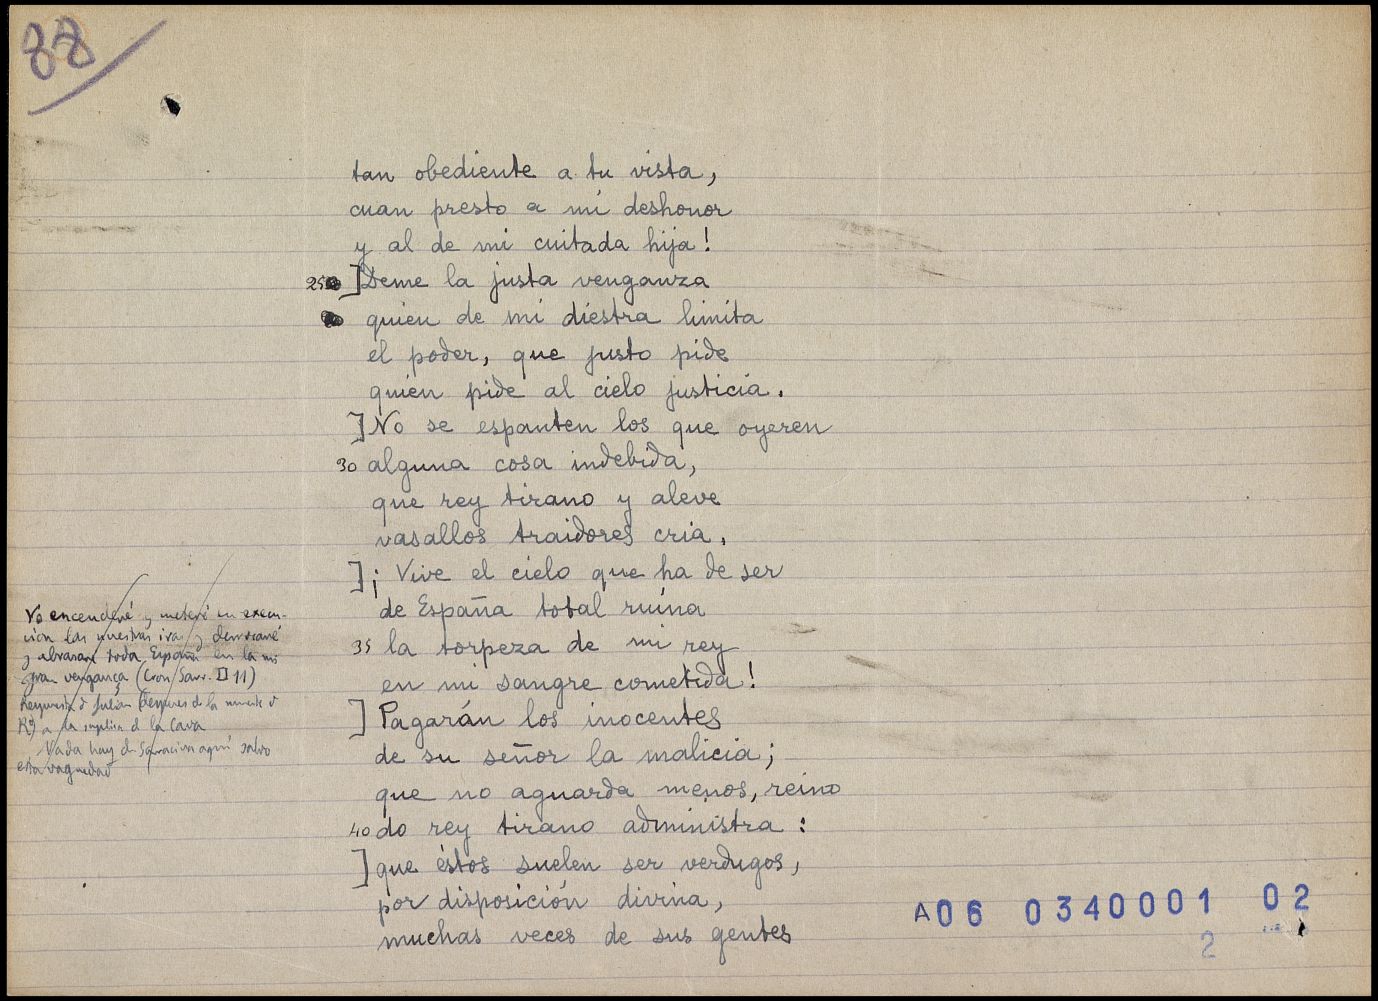 88
tan obediente a tu vista,
cuan presto a mi deshonor
y al de mi cuitada hija!
25 ]Deme la justa venganza
quien de mi diestra limita
el poder, que justo pide
quien pide al cielo justicia.
]No se espanten los que oyeren
30 alguna cosa indebida,
que rey tirano y aleve
vasallos traidores cria.
]¡Vive el cielo que ha de ser
de España total ruina
35 la torpeza de mi rey
en mi sangre cometida!
]Pagarán los inocentes
de su señor la malicia;
que no aguarda menos, reino
40 do rey tirano administra:
]que éstos suelen ser verdugos,
por disposición divina,
muchas veces de sus gentes
Yo encenderé y meteré en execu-
cion las nuestras iras y derrocaré
y abrasaré toda España en la mi
gran vengança (Cron. Sarr. II 11)
Respuesta d Julián (despues de la muerte d
R.º) a la suplica d la Cava
Nada hay de Sarracina aquí salvo
esta vaguedad
A06 0340001 02
2